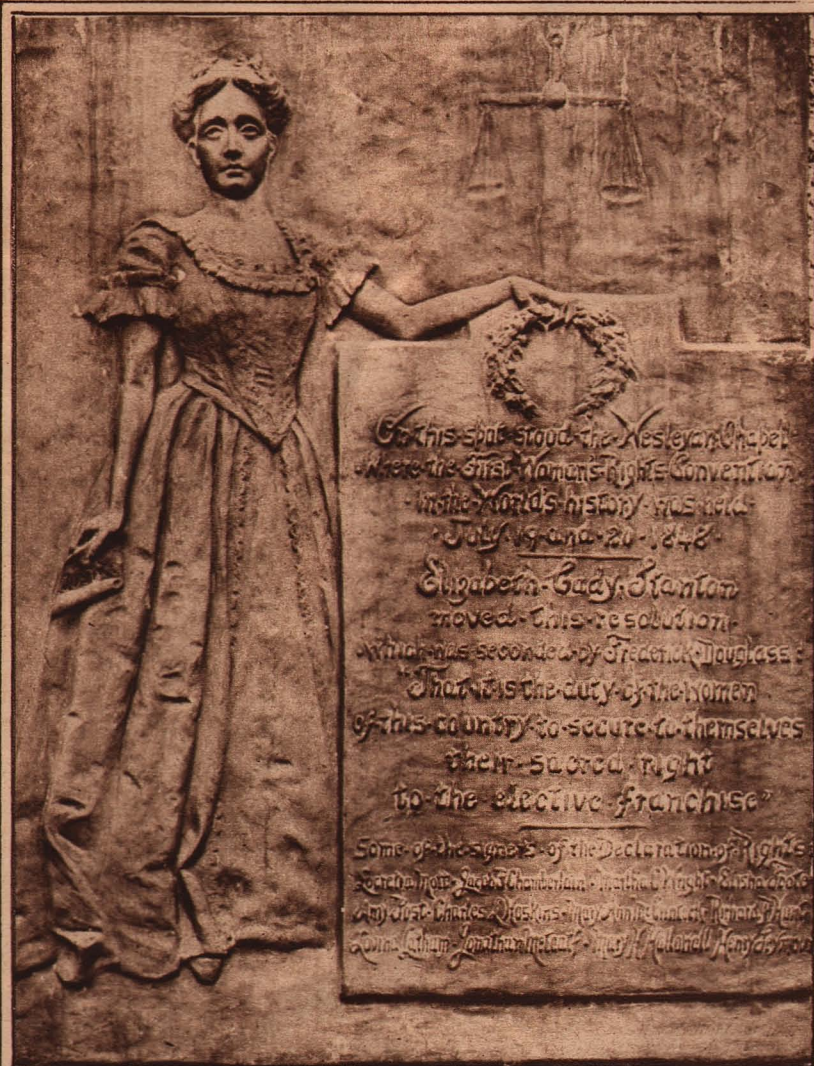 On this spot stood the Wesleyan Chapel
Where the First Woman's Rights Convention
in the World's history was held
July 19 and 20 1848
Elizabeth Cady Stanton
moved this resolution
which was seconded by Frederick Douglass:
"That it is the duty of the women
of this country to secure to themselves
their sacred right
to the elective franchise"
Some of the signers of the Declaration of Rights:
Lucretia Mott Jacob P Chamberlain Martha C Wright Elisha Foote
Amy Post Charles L Hoskins Mary Ann McClintock Richard P Hunt
Lovina Latham Jonathan Metcalf Mary H Hallowell Henry Seymour